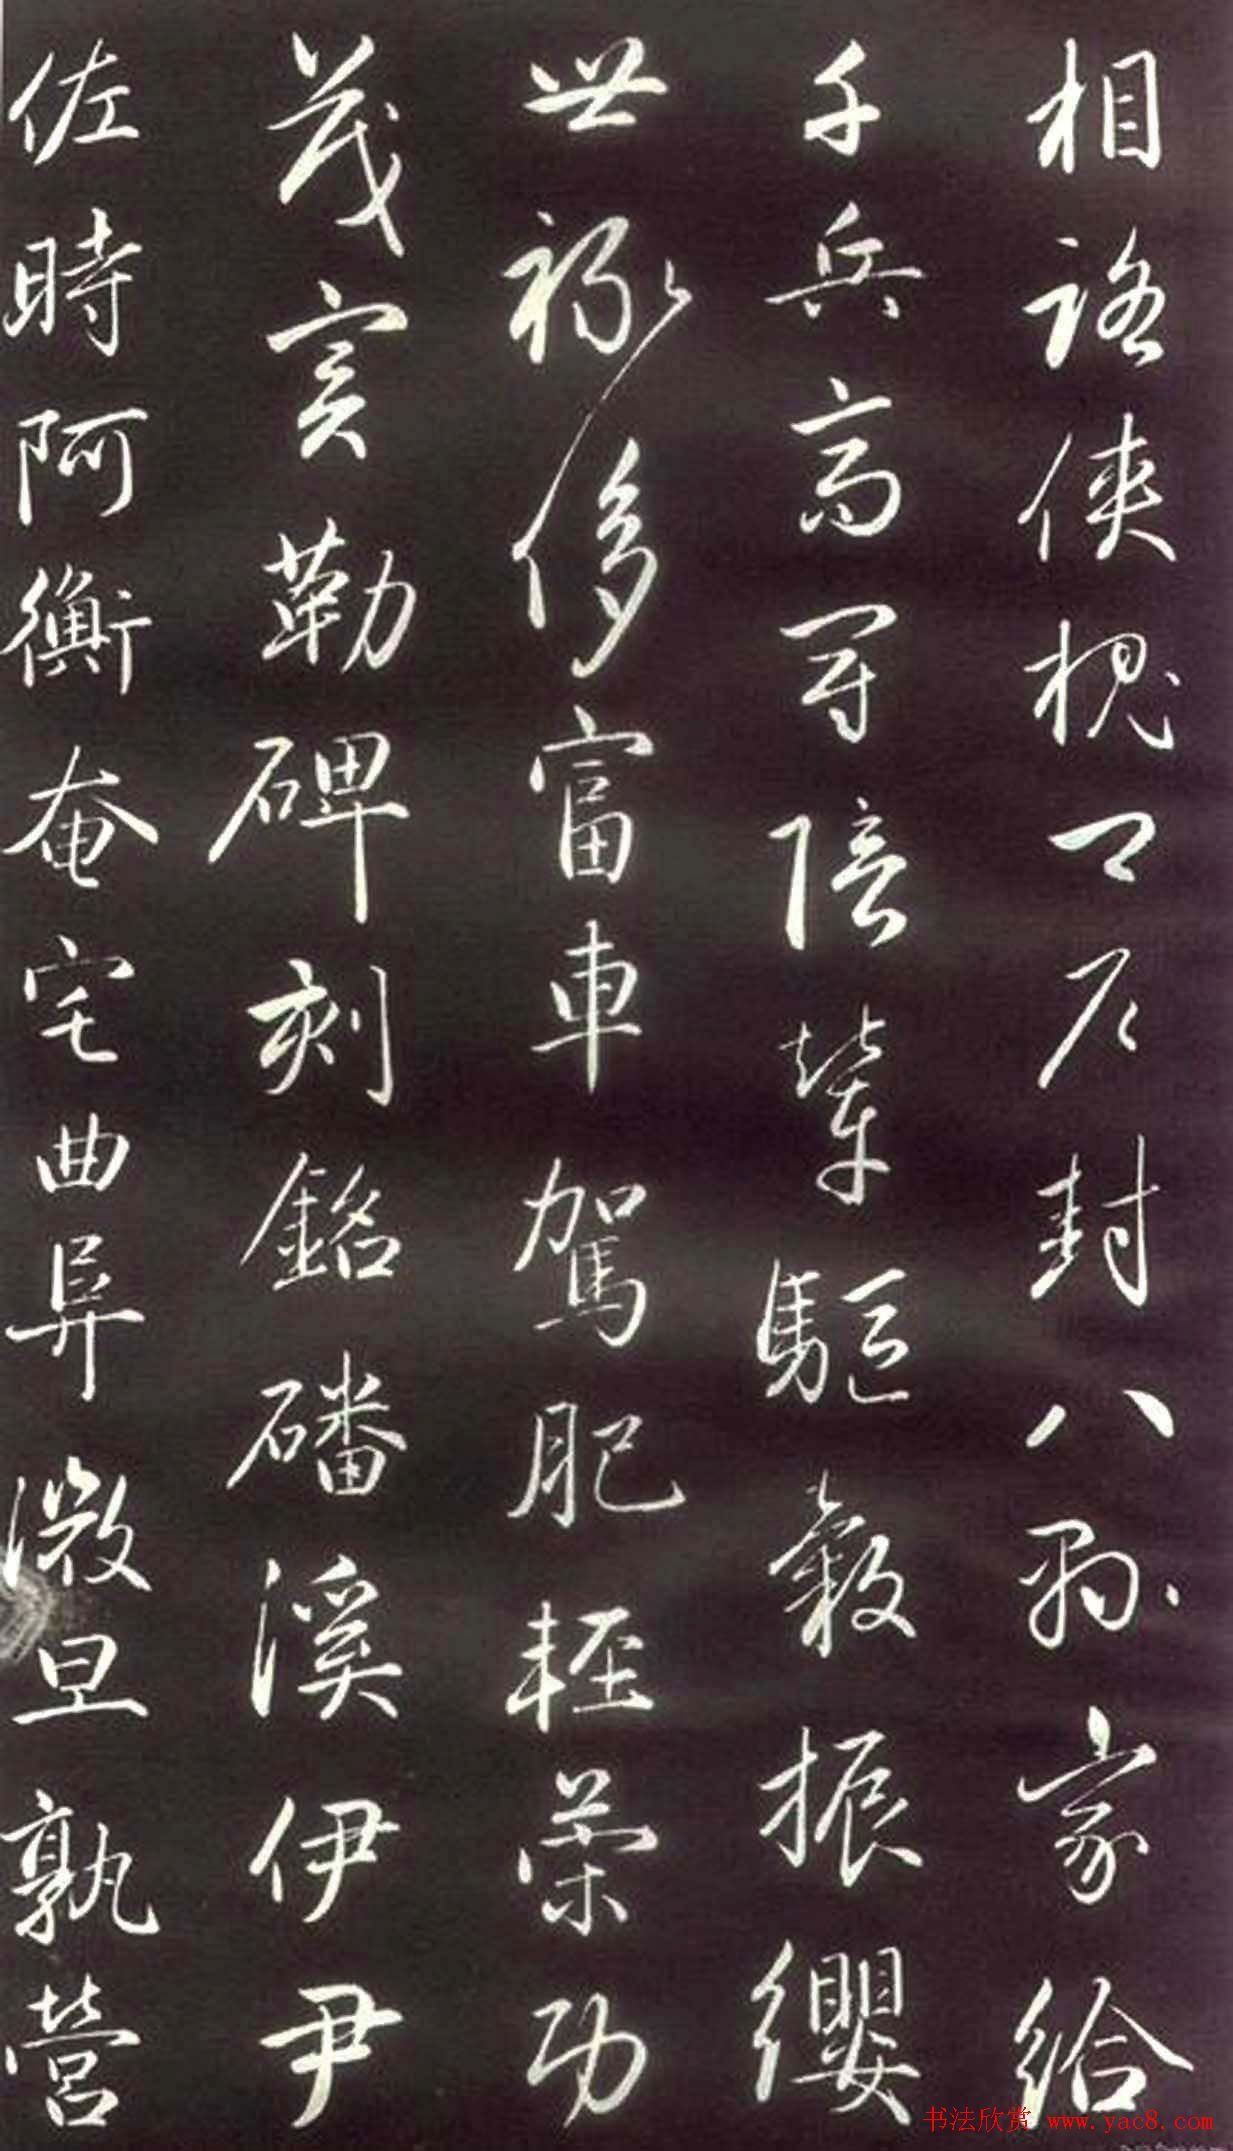 相路侠槐卿户封八縣家給
千兵高冠陪輦驅轂振纓
世祿侈富車駕肥輕策功
茂實勒碑刻銘磻溪伊尹
佐時阿衡奄宅曲阜微旦孰營
书法欣赏 www.yac8.com